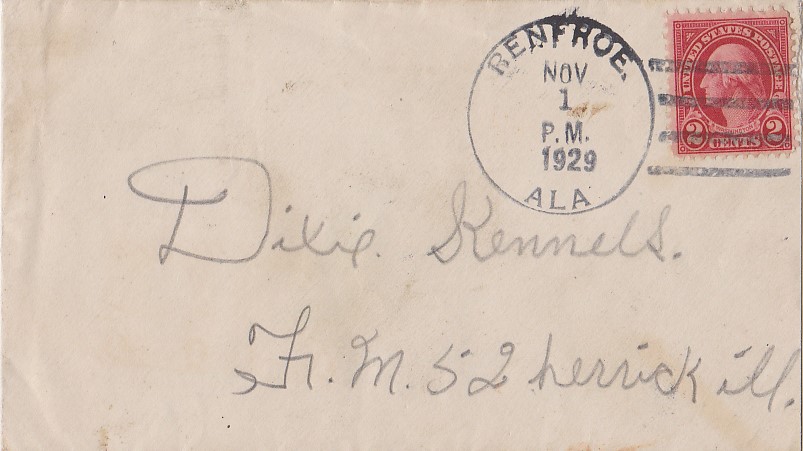 RENFROE.
NOV
1
P.M.
1929
ALA
UNITED STATES POSTAGE
2 CENTS 2
Dixie. Kennels.
Fr. M. 52 herrick ill.